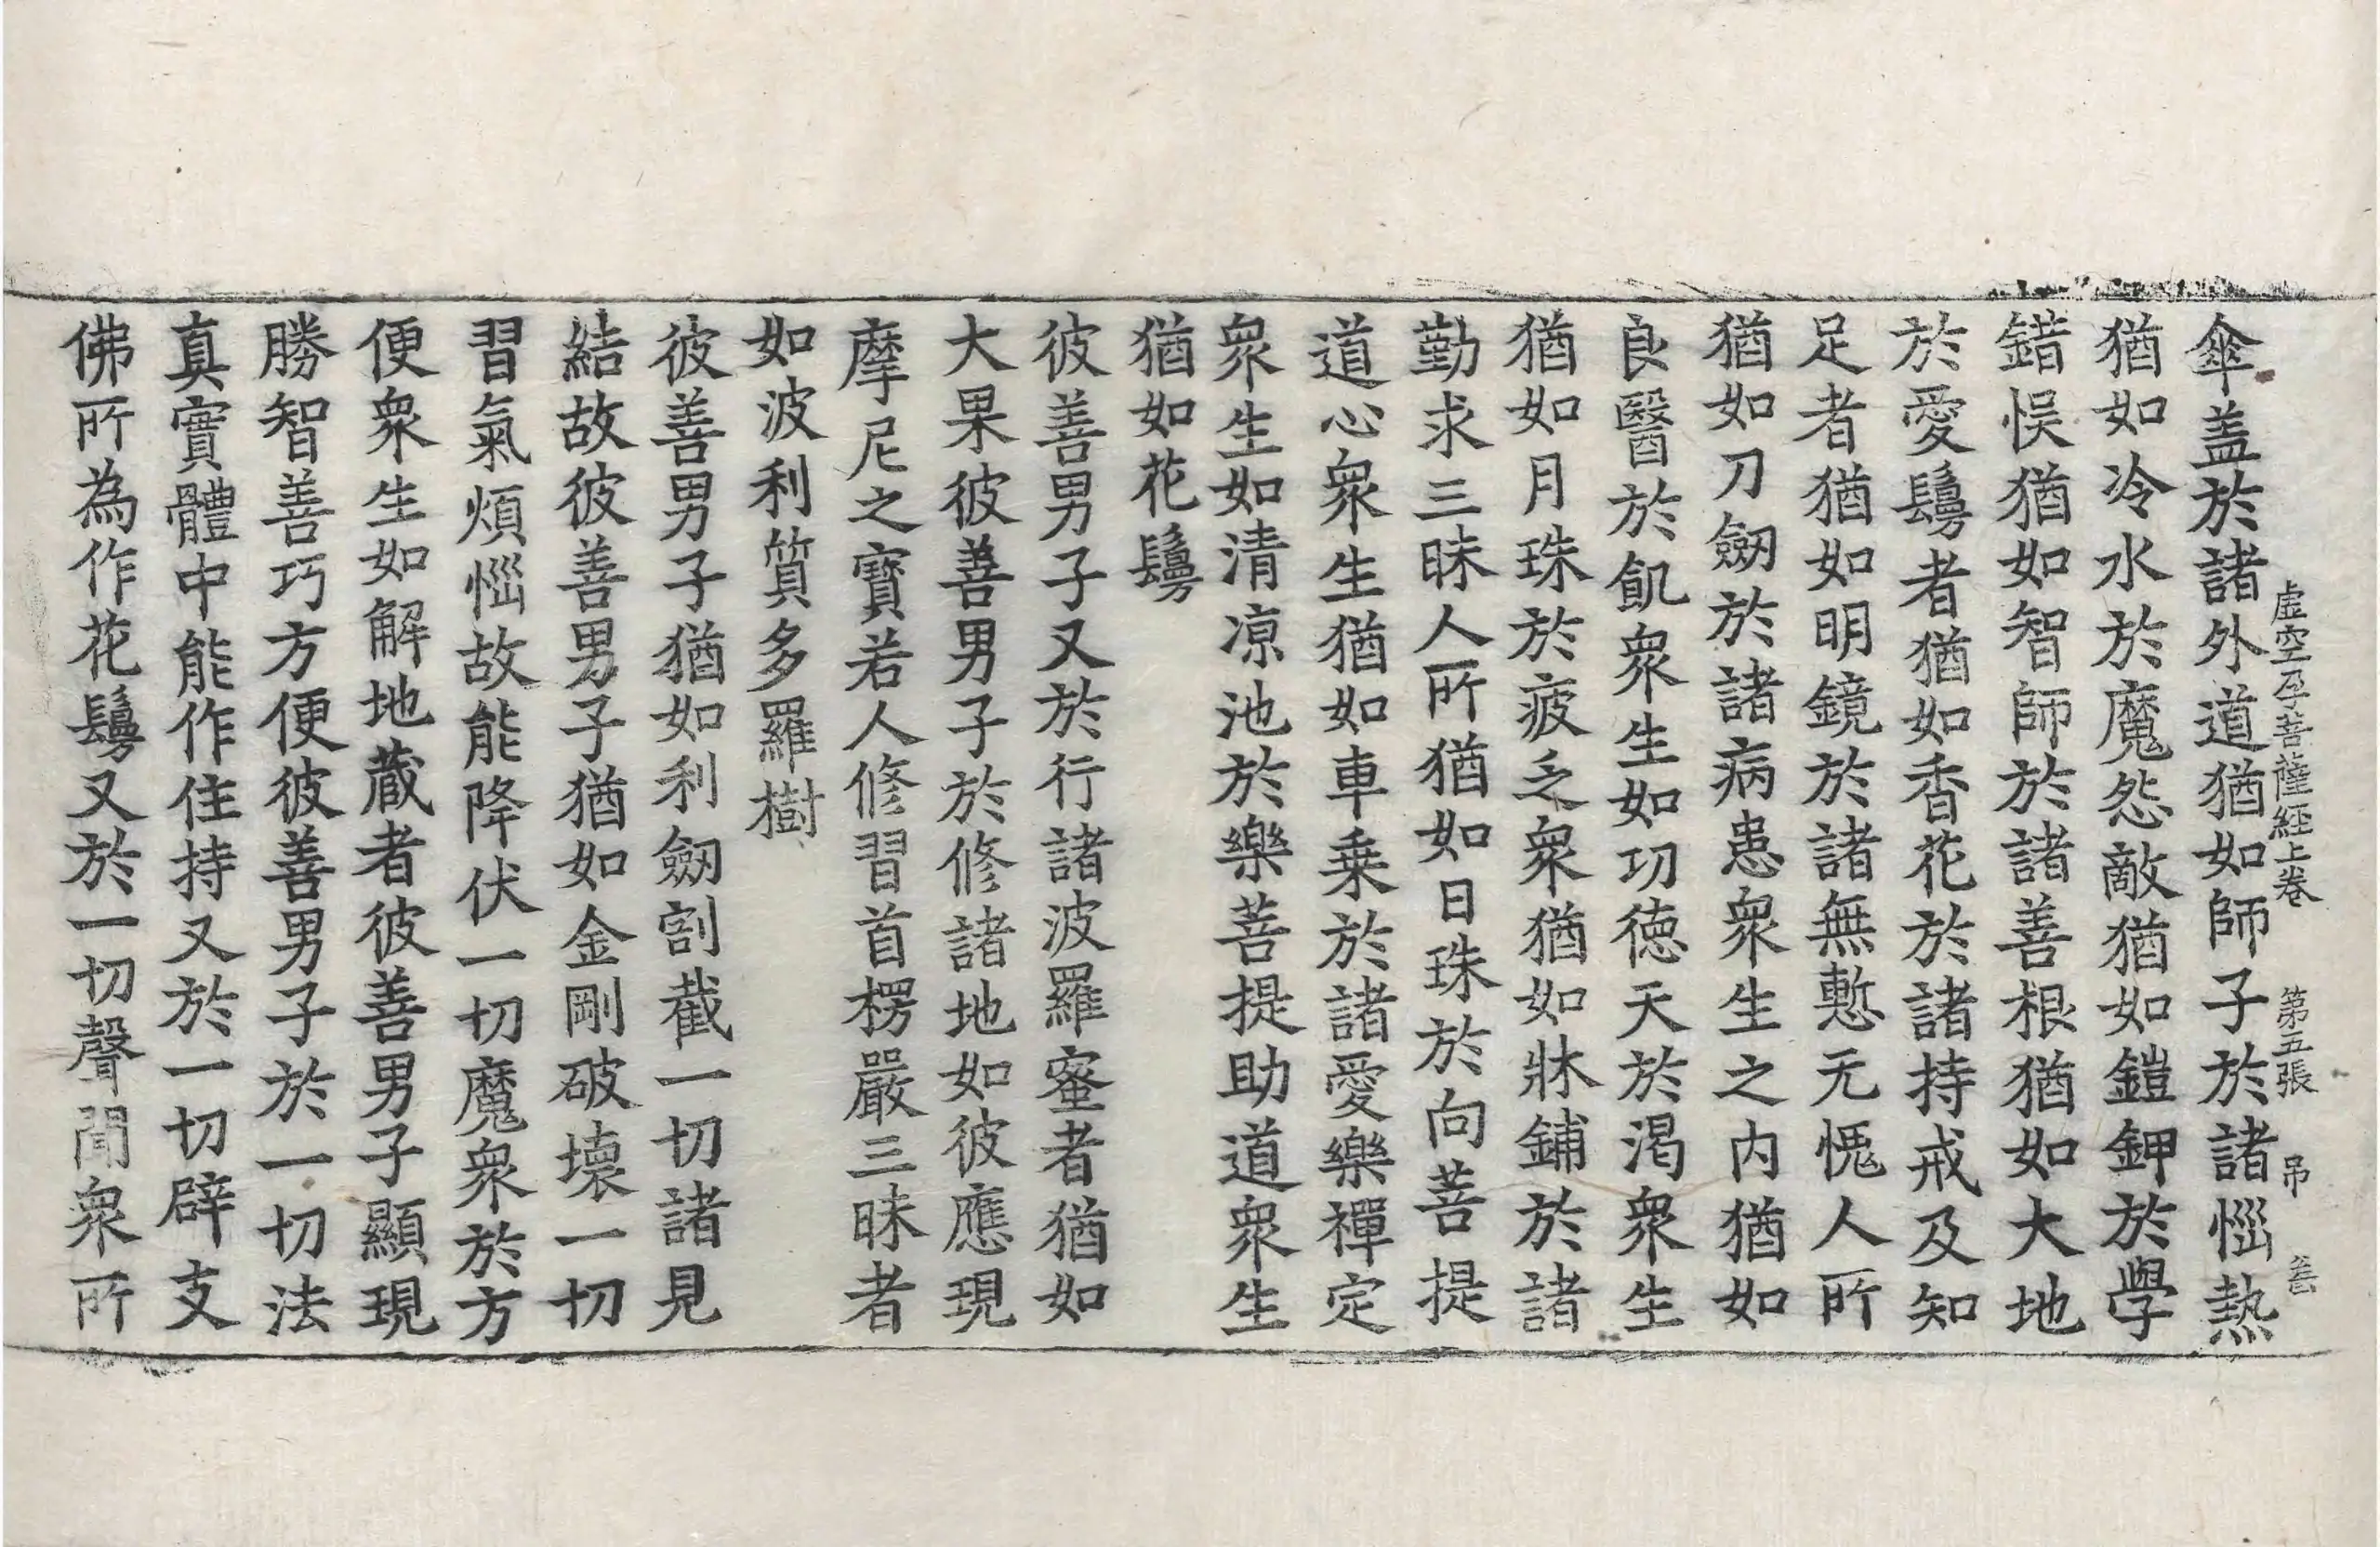 虛空孕菩薩經上卷 第五張 吊
傘盖於諸外道猶如師子於諸惱熱
猶如冷水於魔怨敵猶如鎧鉀於學
錯悮猶如智師於諸善根猶如大地
於愛鬘者猶如香花於諸持戒及知
足者猶如明鏡於諸無慙无愧人所
猶如刀劒於諸病患衆生之内猶如
良醫於飢衆生如功德天於渴衆生
猶如月珠於疲乏衆猶如牀鋪於諸
勤求三昧人所猶如日珠於向菩提
道心衆生猶如車乗於諸愛樂禪定
衆生如清凉池於樂菩提助道衆生
猶如花鬘
彼善男子又於行諸波羅蜜者猶如
大果彼善男子於修諸地如彼應現
摩尼之寳若人修習首楞嚴三昧者
如波利質多羅樹
彼善男子猶如利劒割截一切諸見
結故彼善男子猶如金剛破壞一切
習氣煩惱故能降伏一切魔衆於方
便衆生如解地蔵者彼善男子顯現
勝智善巧方便彼善男子於一切法
真實體中能作住持又於一切辟支
佛所為作花鬘又於一切聲聞衆所